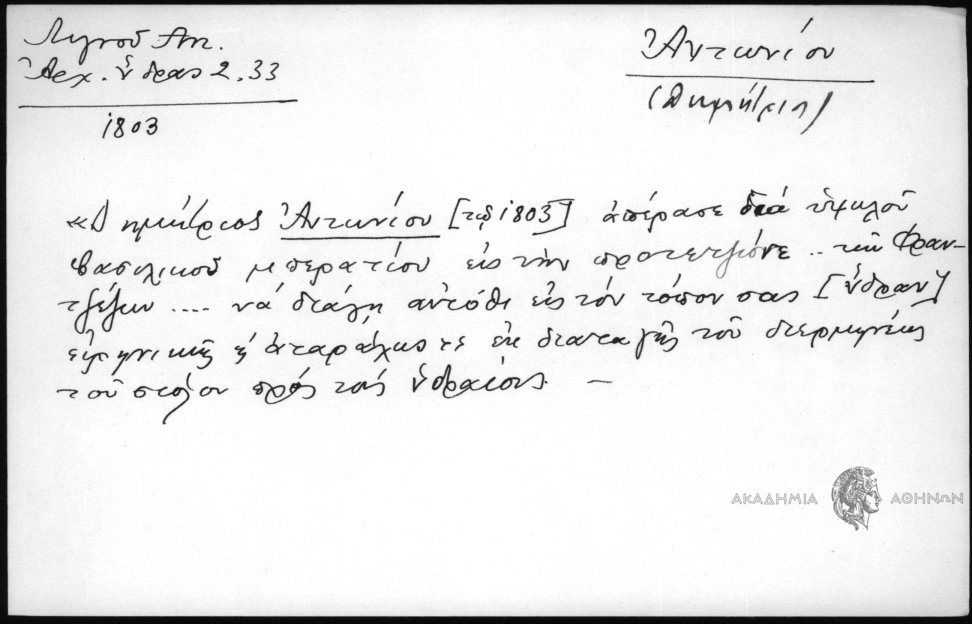 Λιγνοῦ Αντ.
Ἀρχ. Ὕδρας 2. 33
1803
Ἀντωνίου
(Δημήτριος)
«Δημήτριος Ἀντωνίου [τῷ 1803] ἀπέρασε διά ὑψηλοῦ
βασιλικοῦ μπερατίου εἰς τὴν προτετζιόνε .. τῶν Φραν-
τζέζων .... νά διάγη αὐτόθι εἰς τόν τόπον σας [Ὕδραν]
εἰρηνικῶς ἀταράχως τε ἐκ διαταγῆς τοῦ διερμηνέως
τοῦ στόλου πρός τούς Ὑδραίους. —
ΑΚΑΔΗΜΙΑ ΑΘΗΝΩΝ